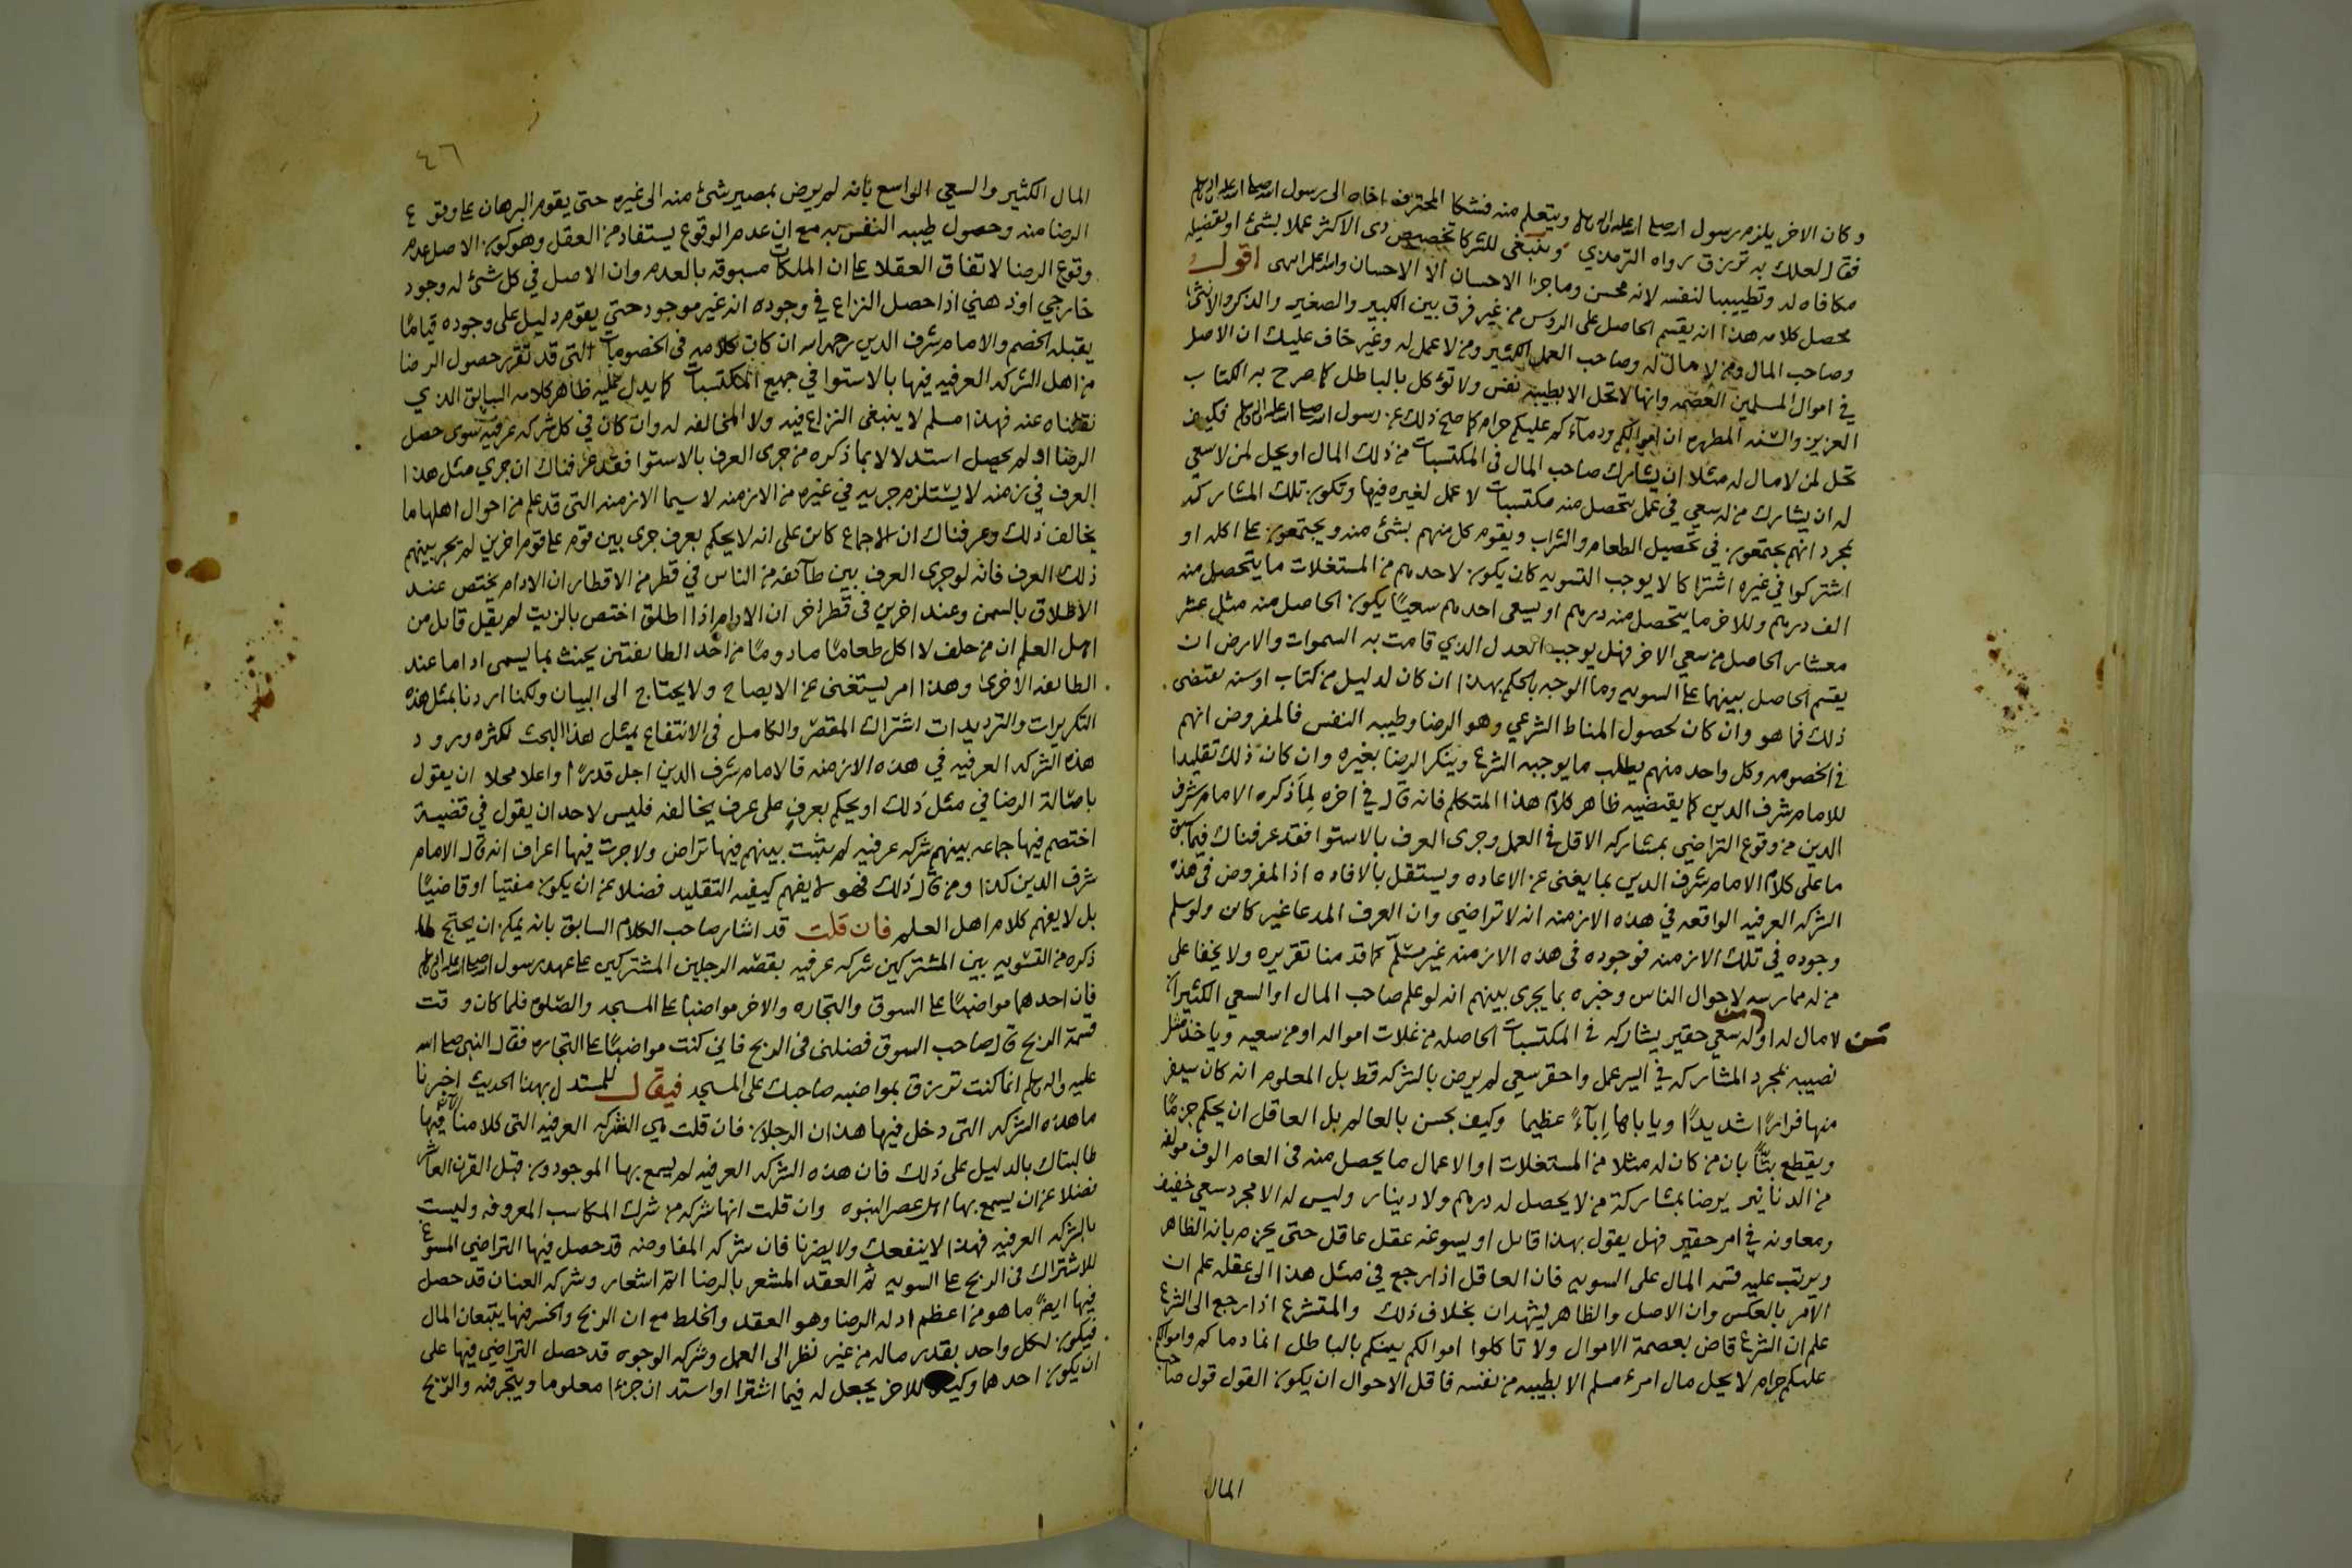 وكان الاخر يلزم رسول الله صلى الله عليه واله وسلم ويتعلم منه فشكا المحترف اخاه الى رسول الله صلى الله عليه واله وسلم
فقال لعلك به ترزق رواه الترمذي وينبغي للشركا تخصيص ذى الاكثر عملا بشئ او تفضيله
مكافاه له وتطييبا لنفسه لانه محسن وما جزا الاحسان الا الاحسان والله اعلم انتهى اقول
محصل كلامه هذا انه يقسم الحاصل على الروس من غير فرق بين الكبير والصغير والذكر والانثى
وصاحب المال ومن لا مال له وصاحب العمل الكثير ومن لا عمل له وغير خاف عليك ان الاصل
في اموال المسلمين العصمه وانها لا تحل الا بطيبة نفس ولا توكل بالباطل كما صرح به الكتاب
العزيز والسنه المطهره ان اموالكم ودمآءكم عليكم حرام كما صح ذلك عن رسول الله صلى الله عليه واله وسلم فكيف
تحل لمن لا مال له مثلا ان يشارك صاحب المال في المكتسبات من ذلك المال او يحل لمن لا سعي
له ان يشارك من له سعي في عمل تحصل منه مكتسبات لا عمل لغيره فيها وتكون تلك المشاركه
بمجرد انهم يجتمعون في تحصيل الطعام والشراب ويقوم كل منهم بشئ منه ويجتمعون على اكله او
اشتركوا في غيره اشتراكا لا يوجب التسويه كان يكون لاحدهم من المستغلات ما يتحصل منه
الف درهم وللاخر ما يتحصل منه درهم او يسعى احدهم سعيًا يكون الحاصل منه مثل عشر
معشار الحاصل من سعي الاخر فهل يوجب العدل الذي قامت به السموات والارض ان
يقسم الحاصل بينهما على السويه وما الوجه بالحكم بهذا ان كان لدليل من كتاب او سنه يقتضى
ذلك فما هو وان كان لحصول المناط الشرعي وهو الرضا وطيبه النفس فالمفروض انهم
في الخصومه وكل واحد منهم يطلب ما يوجبه الشرع وينكر الرضا بغيره وان كان ذلك تقليدا
للامام شرف الدين كما يقتضيه ظاهر كلام هذا المتكلم فانه قال في اخره لما ذكره الامام شرف
الدين من وقوع التراضي بمشاركه الاقل في العمل وجرى العرف بالاستوا فقد عرفناك فيما سبق
ما على كلام الامام شرف الدين بما يغنى عن الاعاده ويستقل بالافاده اذ المفروض في هذه
الشركه العرفيه الواقعه في هذه الازمنه انه لا تراضي وان العرف المدعا غير كائن ولو سلم
وجوده في تلك الازمنه فوجوده في هذه الازمنه غير مسلّم كما قدمنا تقريره ولا يخفا على
من له ممارسه لاحوال الناس وخبره بما يجرى بينهم انه لو علم صاحب المال او السعي الكثير ان
من لا مال له او له سعي حقير يشاركه في المكتسبات الحاصله من غلات امواله او من سعيه وياخذ مثل
نصيبه بمجرد المشاركه في ايسر عمل واحقر سعي لم يرض بالشركه قط بل المعلوم انه كان سيفر
منها فرارًا شديدًا وياباها إبآءً عظيما وكيف يحسن بالعالم بل العاقل ان يحكم جزمًا
ويقطع بتّاً بان من كان له مثلا من المستغلات او الاعمال ما يحصل منه في العام الوف مولفه
من الدنانير يرضا بمشاركة من لا يحصل له درهم ولا دينار وليس له الا مجرد سعي خفيف
ومعاونه في امر حقير فهل يقول بهذا قائل او يسوغه عقل عاقل حتى يجزم بانه الظاهر
ويرتب عليه قسمه المال على السويه فان العاقل اذا رجع في مثل هذا الى عقله علم ان
الامر بالعكس وان الاصل والظاهر يشهدان بخلاف ذلك والمتشرع اذا رجع الى الشرع
علم ان الشرع قاض بعصمة الاموال ولا تاكلوا اموالكم بينكم بالباطل انما دماكم واموالكم
عليكم حرام لا يحل مال امرء مسلم الا بطيبه من نفسه فاقل الاحوال ان يكون القول قول صاحب
المال
٤٦
المال الكثير والسعي الواسع بانه لم يرض بمصير شئ منه الى غيره حتى يقوم البرهان على وقوع
الرضا منه وحصول طيبه النفس به مع ان عدم الوقوع يستفاد من العقل وهو كون الاصل عدم
وقوع الرضا لاتفاق العقلا على ان الملكات مسبوقه بالعدم وان الاصل في كل شئ له وجود
خارجي او ذهني اذا حصل النزاع في وجوده انه غير موجود حتى يقوم دليل على وجوده قيامًا
يقبله الخصم والامام شرف الدين رحمه الله ان كان كلامه في الخصومات التى قد تقرر حصول الرضا
من اهل الشركه العرفيه فيها بالاستوا في جميع المكتسبات كما يدل عليه ظاهر كلامه السابق الذي
نقلناه عنه فهذا مسلم لا ينبغى النزاع فيه ولا المخالفه له وان كان في كل شركه عرفيه سوى حصل
الرضا او لم يحصل استدلالا بما ذكره من جرى العرف بالاستوا فقد عرفناك ان جري مثل هذا
العرف في زمنه لا يستلزم جريه في غيره من الازمنه لا سيما الازمنه التى قد علم من احوال اهلها ما
يخالف ذلك وعرفناك ان الاجماع كائن على انه لا يحكم بعرف جرى بين قوم على قوم اخرين لم يجر بينهم
ذلك العرف فانه لو جرى العرف بين طآئفه من الناس في قطر من الاقطار ان الادام يختص عند
الاطلاق بالسمن وعند اخرين في قطر اخر ان الادام اذا اطلق اختص بالزيت لم يقل قايل من
اهل العلم ان من حلف لا اكل طعامًا مادومًا من احد الطايفتين يحنث بما يسمى اداما عند
الطايفه الاخرى وهذا امر يستغنى عن الايضاح ولا يحتاج الى البيان ولكنا اردنا بمثل هذه
التكريرات والترديدات اشتراك المقصر والكامل في الانتفاع بمثل هذا البحث لكثره ورود
هذه الشركه العرفيه في هذه الازمنه فالامام شرف الدين اجل قدرًا واعلا محلا ان يقول
باصالة الرضا في مثل ذلك او يحكم بعرفٍ على عرف يخالفه فليس لاحد ان يقول في قضية
اختصم فيها جماعه بينهم شركه عرفيه لم يثبت بينهم فيها تراض ولا جرت فيها اعراف انه قال الامام
شرف الدين كذا ومن قال ذلك فهو لا يفهم كيفيه التقليد فضلا عن ان يكون مفتيا او قاضيًا
بل لا يفهم كلام اهل العلم فان قلت قد اشار صاحب الكلام السابق بانه يمكن ان يحتج لما
ذكره من التسويه بين المشتركين شركه عرفيه بقصه الرجلين المشتركين على عهد رسول الله صلى الله عليه واله وسلم
فان احدهما مواضبًا على السوق والتجاره والاخر مواضبا على المسجد والصلوه فلما كان وقت
قسمة الربح قال صاحب السوق فضلني في الربح فاني كنت مواضبًا على التجاره فقال النبى صلى الله
عليه واله وسلم انما كنت ترزق بمواضبه صاحبك على المسجد فيقال للمستدل بهذا الحديث اخبرنا
ما هذه الشركه التى دخل فيها هذان الرجلان فان قلت هي الشركه العرفيه التى كلامنا فيها
طالبناك بالدليل على ذلك فان هذه الشركه العرفيه لم يسمع بها الموجودون قبل القرن العاشر
فضلا عن ان يسمع بها اهل عصر النبوه وان قلت انها شركه من شرك المكاسب المعروفه وليست
بالشركه العرفيه فهذا لا ينفعك ولا يضرنا فان شركه المفاوضه قد حصل فيها التراضي المسوغ
للاشتراك في الربح على السويه ثم العقد المشعر بالرضا اتم اشعار وشركه العنان قد حصل
فيها ايضًا ما هو من اعظم ادله الرضا وهو العقد والخلط مع ان الربح والخسر فيها يتبعان المال
فيكون لكل واحد بقدر ماله من غير نظر الى العمل وشركه الوجوه قد حصل التراضي فيها على
ان يكون احدهما وكيلا للاخر يجعل له فيما اشترا او استدان جزءا معلوما ويتجر فيه والربح